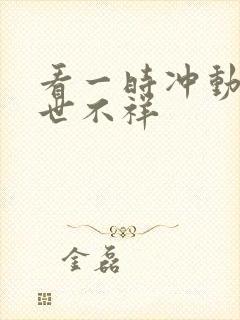 看一时冲动
世不祥
金磊